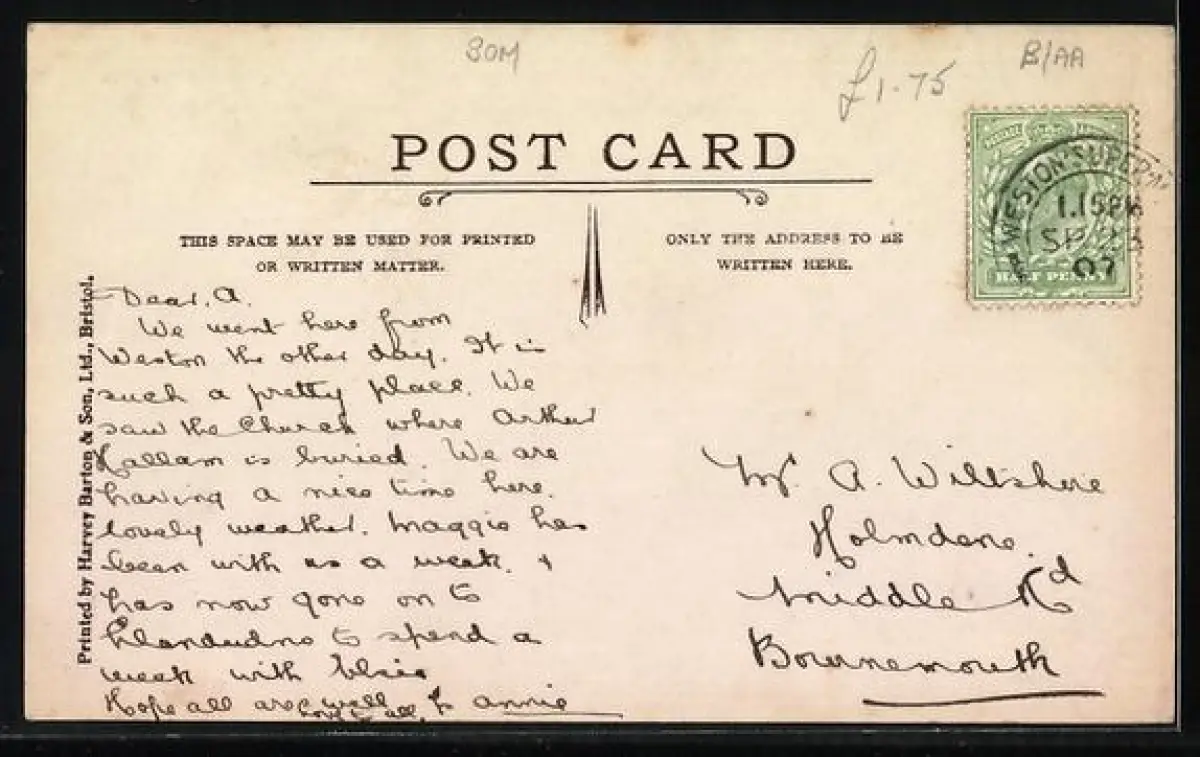 SOM
£1.75
B/AA
POST CARD
THIS SPACE MAY BE USED FOR PRINTED
OR WRITTEN MATTER.
ONLY THE ADDRESS TO BE
WRITTEN HERE.
WESTON-SUPER-M
1.15PM
SP
07
HALF PENNY
Printed by Harvey Barton & Son, Ltd., Bristol.
Dear. A.
We went here from
Weston the other day. It is
such a pretty place. We
saw the Church where Arthur
Hallam is buried. We are
having a nice time here.
lovely weather. Maggie has
been with us a week. &
has now gone on to
Llandudno to spend a
week with Elsie
Hope all are well
love to all. Annie
Mr. A. Wiltshire
Holmdene.
Middle Rd
Bournemouth